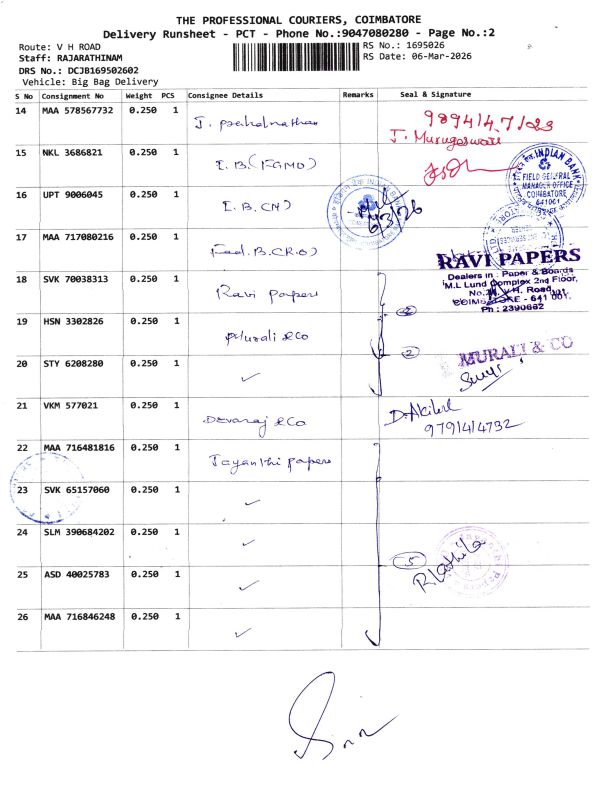 THE PROFESSIONAL COURIERS, COIMBATORE
Delivery Runsheet - PCT - Phone No.:9047080280 - Page No.:2
Route: V H ROAD
RS No.: 1695026
Staff: RAJARATHINAM
RS Date: 06-Mar-2026
DRS No.: DCJB169502602
Vehicle: Big Bag Delivery
S No Consignment No Weight PCS Consignee Details Remarks Seal & Signature
14 MAA 578567732 0.250 1
J. Murugeswari
15 NKL 3686821 0.250 1 I.B.(FGMO)
INDIAN BANK
FIELD GENERAL
MANAGER OFFICE
COIMBATORE
641001
16 UPT 9006045 0.250 1 I.B.CN)
6/3/26
17 MAA 717080216 0.250 1 Fed.B.CR.O)
RAVI PAPERS
Dealers in : Paper & Boards
M.L Lund Complex 2nd Floor,
18 SVK 70038313 0.250 1 Ravi papers
Ph : 2390662
19 HSN 3302826 0.250 1 Murali &Co
2
2
MURALI & CO
20 STY 6208280 0.250 1 ✓
21 VKM 577021 0.250 1 Devaraj &Co
9791414732
22 MAA 716481816 0.250 1 Jayanthi papers
23 SVK 65157060 0.250 1 ✓
24 SLM 390684202 0.250 1 ✓
5
25 ASD 40025783 0.250 1 ✓
26 MAA 716846248 0.250 1 ✓